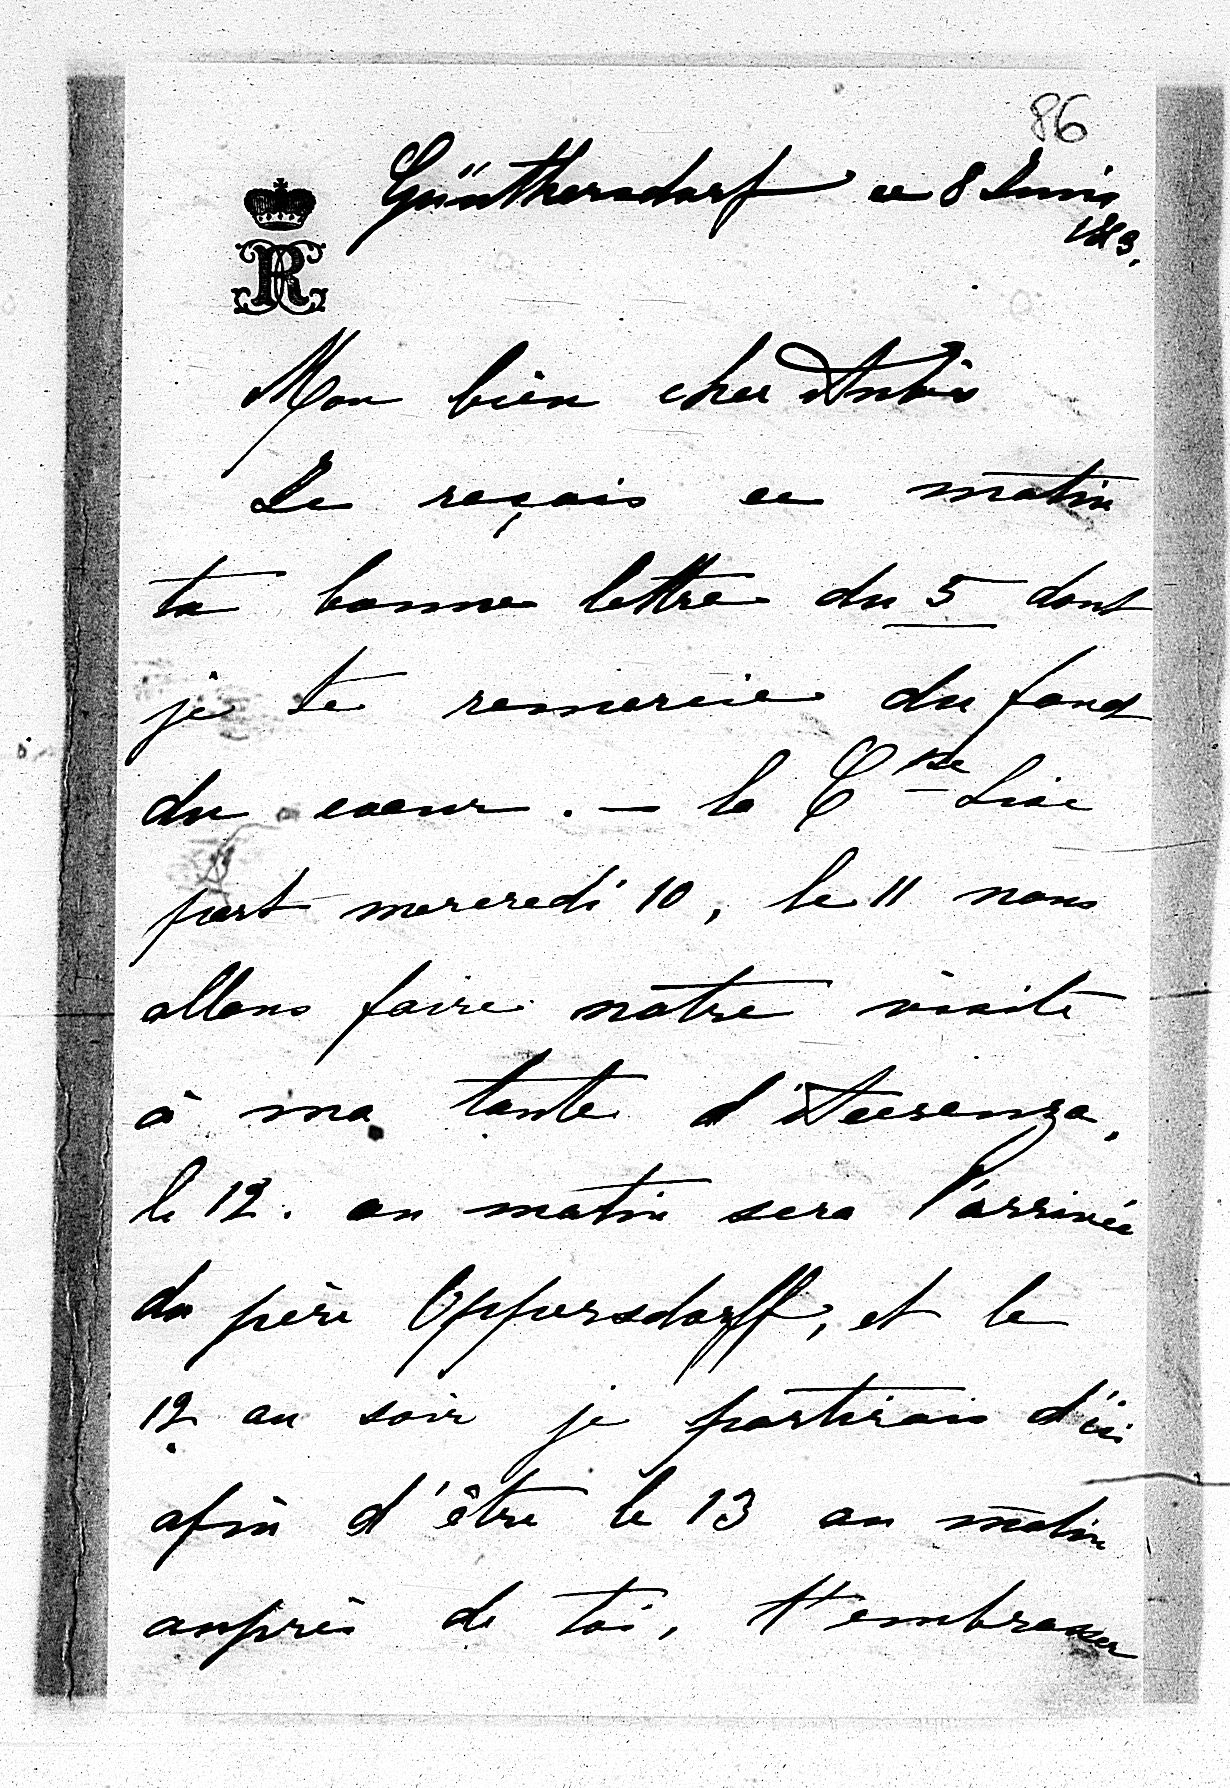 86
Günthersdorf ce 8 Juin
Mon bien cher Antoin
Je reçois ce matin
ta bonne lettre du 5 dont
je te remercie du fond
du coeur. – la C<sup>sse</sup> Lise
part mercredi 10, le 11 nous
allons faire notre visite
à ma tante d'Acerenza,
le 12. au matin sera l'arrivée
du père Oppersdorff, et le
12 au soir je partirais d'ici
afin d'être le 13 au matin
auprès de toi, t'embrasser